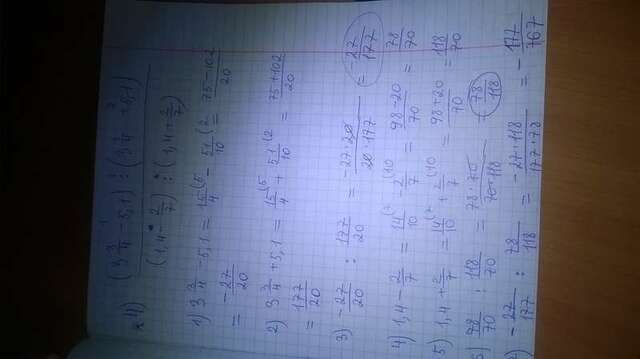 н 4) ((3 3/4 - 5,1) : (3 3/4 + 5,1)) / ((1,4 - 2/7) : (1,4 + 2/7))
1) 3 3/4 - 5,1 = 15/4 (5 - 51/10 (2 = (75 - 102)/20
= -27/20
2) 3 3/4 + 5,1 = 15/4 (5 + 51/10 (2 = (75 + 102)/20
= 177/20
3) -27/20 : 177/20 = -(27 · 20)/(20 · 177) = -27/177
4) 1,4 - 2/7 = 14/10 (7 - 2/7 (10 = (98 - 20)/70 = 78/70
5) 1,4 + 2/7 = 14/10 (7 + 2/7 (10 = (98 + 20)/70 = 118/70
6) 78/70 : 118/70 = (78 · 70)/(70 · 118) = 78/118
) -27/177 : 78/118 = -(27 · 118)/(177 · 78) = -177/767